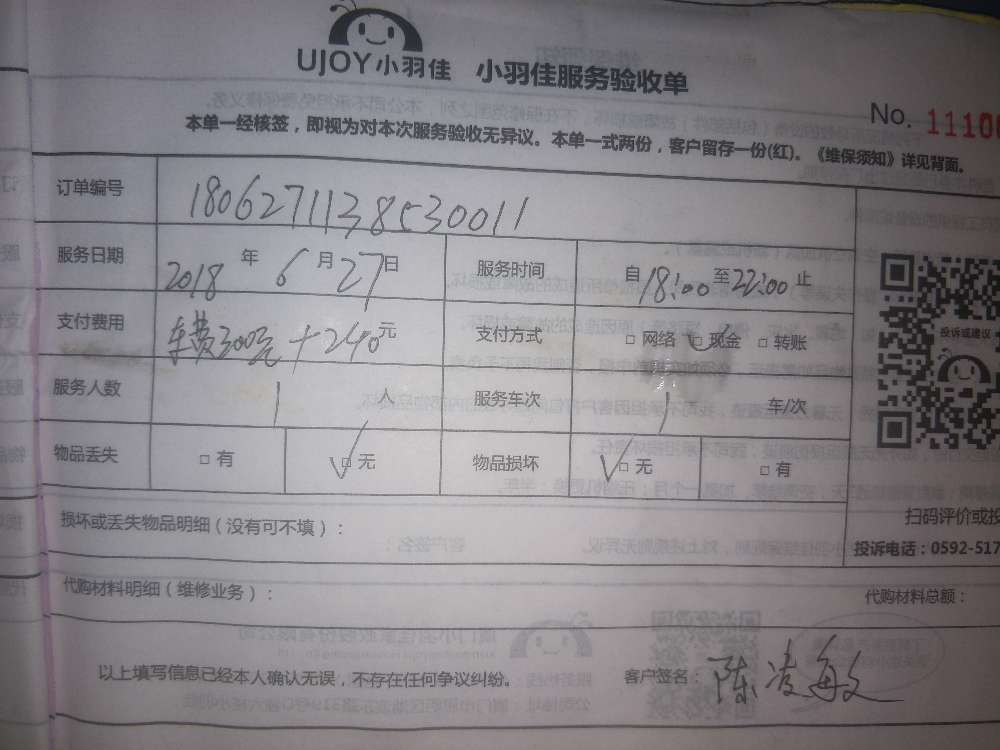 UJOY小羽佳 小羽佳服务验收单
No. 11100
本单一经核签，即视为对本次服务验收无异议。本单一式两份，客户留存一份(红)。《维保须知》详见背面。
订单编号 1806271138530011
服务日期 2018 年 6 月 27 日 服务时间 自 18:00 至 22:00 止
支付费用 车费300元 + 240 元 支付方式 □ 网络 ✓□ 现金 □ 转账
投诉或建议
服务人数 1 人 服务车次 1 车/次
物品丢失 □ 有 ✓□ 无 物品损坏 ✓□ 无 □ 有
扫码评价或投
损坏或丢失物品明细（没有可不填）：
投诉电话：0592-517
代购材料明细（维修业务）： 代购材料总额：
以上填写信息已经本人确认无误，不存在任何争议纠纷。 客户签名： 陈凌敏